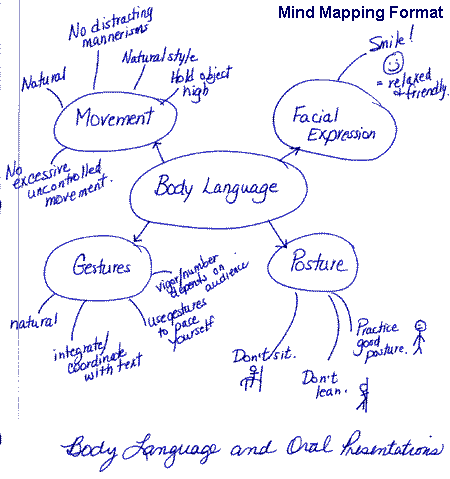 Mind Mapping Format
No distrasting
mannerisms
Natural
Natural style
Hold object
high
Movement
No
excessive
uncontrolled
movement.
Smile!
= relaxed
+ friendly.
Facial
Expression
Body Language
Gestures
natural
integrate/
coordinate
with text
vigor/number
depends on
audience
use gestures
to pace
yourself
Posture
Don't sit.
Don't
lean.
Practice
good
posture.
Body Language and Oral Presentations